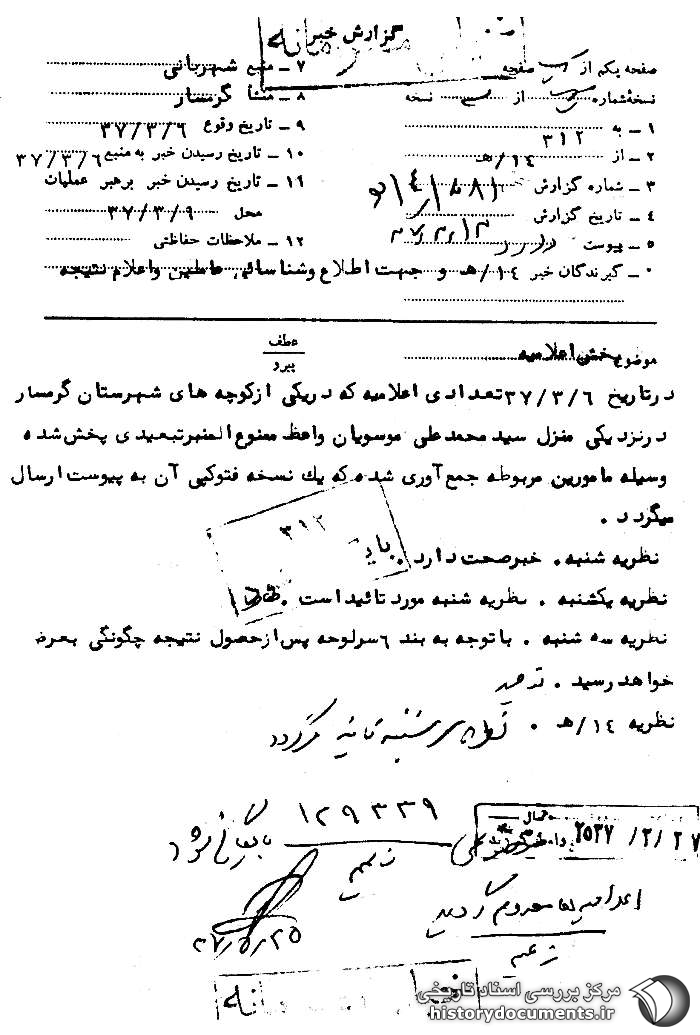 گزارش خبر
صفحه یکم از یک صفحه
نسخه‌شماره از نسخه
۱ ـ به ۳۱۲
۲ ـ از ۱۴/هـ
۳ ـ شماره گزارش
۴ ـ تاریخ گزارش
۵ ـ پیوست دارد
۶ ـ گیرندگان خبر ۱۴/هـ و جهت اطلاع وشناسائی عاملین واعلام نتیجه
۷ ـ منبع شهربانی
۸ ـ منشأ گرمسار
۹ ـ تاریخ وقوع ۳۷/۳/۶
۱۰ ـ تاریخ رسیدن خبر به منبع ۳۷/۳/۶
۱۱ ـ تاریخ رسیدن خبر برهبر عملیات
محل ۳۷/۳/۹
۱۲ ـ ملاحظات حفاظتی
موضوع پخش اعلامیه
عطف
پیرو
درتاریخ ۳۷/۳/۶ تعدادی اعلامیه که دریکی ازکوچه های شهرستان گرمسار
درنزدیکی منزل سیدمحمدعلی موسویان واعظ ممنوع المنبرتبعیدی پخش شده
وسیله مامورین مربوطه جمع آوری شده که یك نسخه فتوکپی آن به پیوست ارسال
میگردد .
نظریه شنبه . خبرصحت دارد .
۳۱۲
نظریه یکشنبه . نظریه شنبه مورد تائیداست .
نظریه سه شنبه . باتوجه به بند ۶ سرلوحه پس ازحصول نتیجه چگونگی بعرض
خواهدرسید .
نظریه ۱۴/هـ . نظریه سه شنبه تائید میگردد
۱۲۹۳۳۹
بایگانی شود
۲۵۳۷/۳/۲۷
اعلامیه ها معدوم گردید
زعیم
۳۷/۵/۲۵
مرکز بررسی اسناد تاریخی
historydocuments.ir